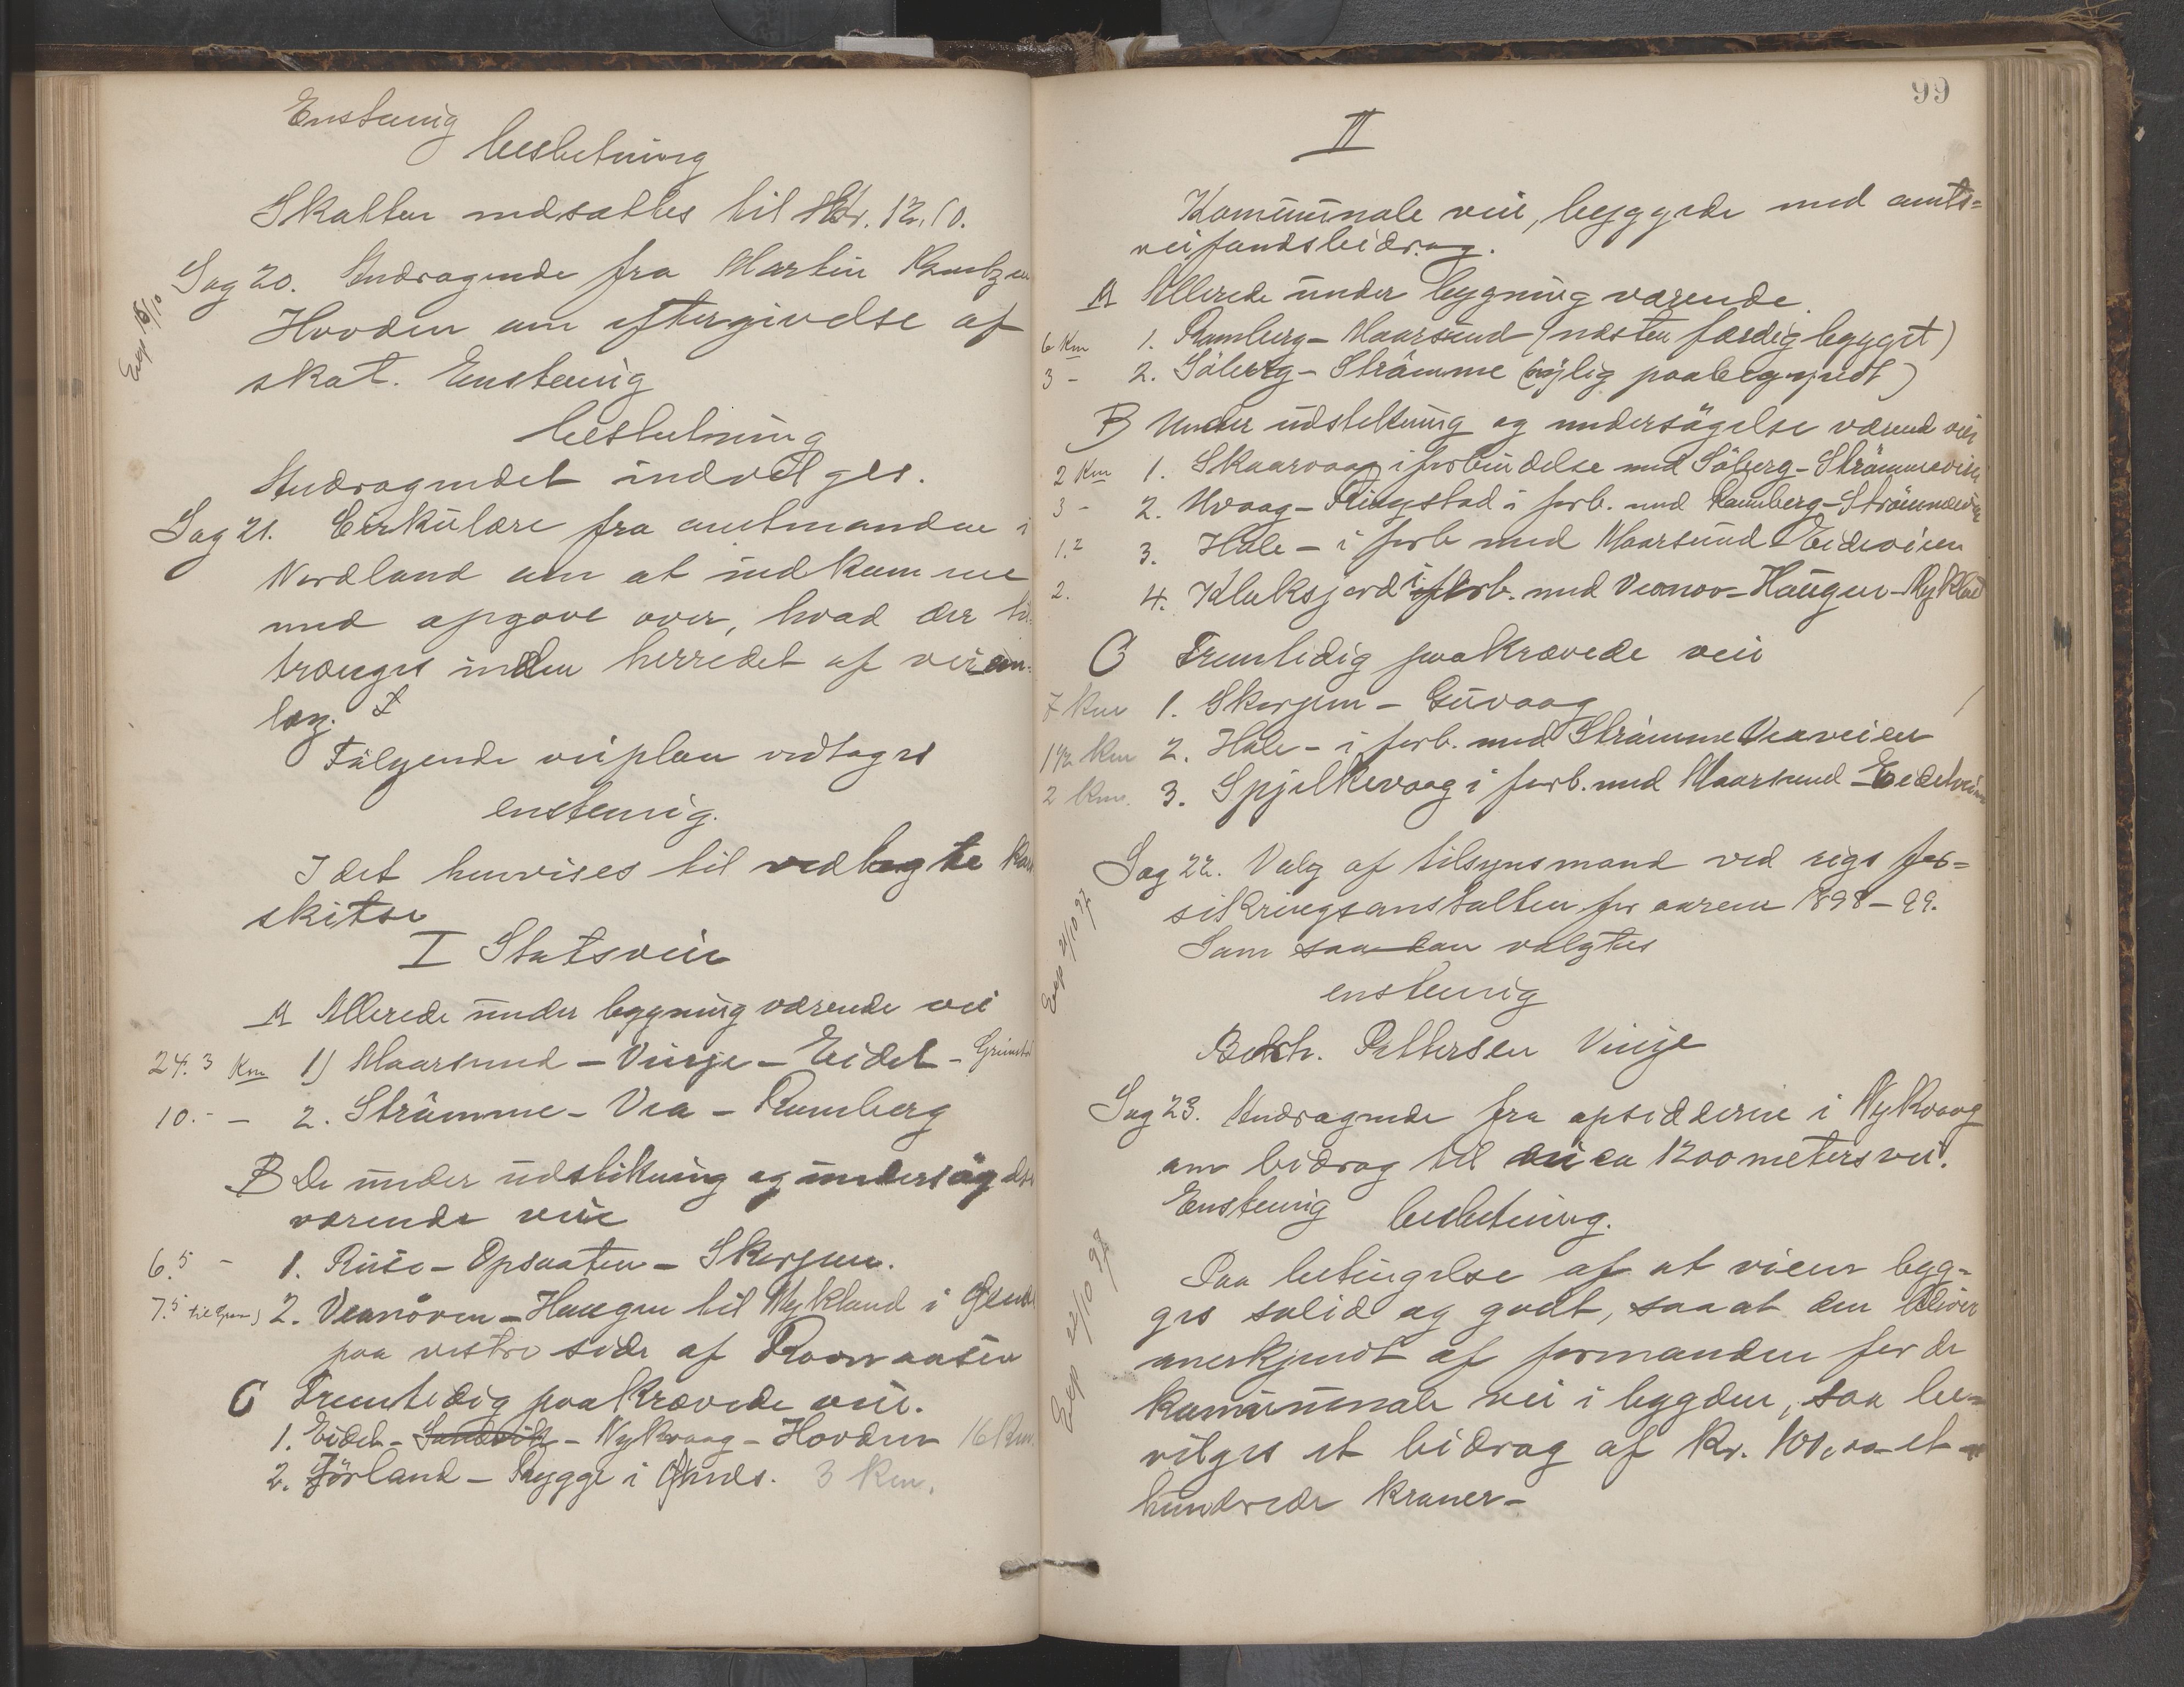 Enstemig
beslutning
Skatten nedsættes til Kr. 12,10.
Exp 16/10
Sag 20. Andragende fra Martin
Hovden om eftergivelse af
skat. Enstemig
beslutning
Andragendet indvilges.
Sag 21. Cirkulære fra amtmanden i
Nordland om at indkomme
med opgave over, hvad der til
trænges inden herredet af veian-
læg.
Følgende veiplan vedtages
enstemig.
I det henvises til vedlagte
skitse
I Statsveie
A Allerede under bygning værende vei
24.3 Km 1) Maarsund - Vinje - Eidet -
10. - - 2. Strømme - Vea - Ramberg
B De under udstikning og undersøgelse
værende veie
6.5 - 1. Rise - Opsaaten - Skorpen.
7.5 2. Veanøren - Haugen til Nykland i
paa vestre side af
C Fremtidig paakrævede veie.
1. Eidet - Sandvik - Nykvaag - Hovden 16 Km.
2. Jörland - Rygge i 3 Km.
99
II
Kommunale veie, byggede med amts-
veifondsbidrag.
A Allerede under bygning værende
6 Km 1. Ramberg - Maarsund (næsten færdig bygget)
3 - 2. Söberg - Strömme (nylig paabegyndt)
B Under udstikning og undersögelse værend veie
2 Km 1. Skaarvaag i forbindelse med Söberg - Strömmeveien
3 - 2. Uvaag - Ringstad i forb. med Ramberg - Strömmeveien
1,2 3. Hole - i forb med Maarsund Eideveien
2. 4. Klaksjord i forb. med Veanor - Haugen - Nykland
C Fremtidig paakrævede veie
7 Km 1. Skorpen - Guvaag
1 1/2 Km 2. Hole - i forb. med Strömme Veaveien
2 Km. 3. Spjelkevaag i forb. med Maarsund - Eidetveien
Exp 21/10 97
Sag 22. Valg af tilsynsmand ved rigsfor=
sikringsanstalten for aarene 1898 - 99.
Som saadan valgtes
enstemig
Pettersen Vinje
Sag 23. Andragende fra opsidderne i Nykvaag
om bidrag til ca 1200 meters vei.
Enstemig beslutning.
Exp 22/10 97
Paa betingelse af at veien byg=
ges solid og godt, saa at den bliver
anerkjendt af formanden for de
kommunale veie i bygden, saa be=
vilges et bidrag af Kr. 100,00 - et -
hundrede kroner -